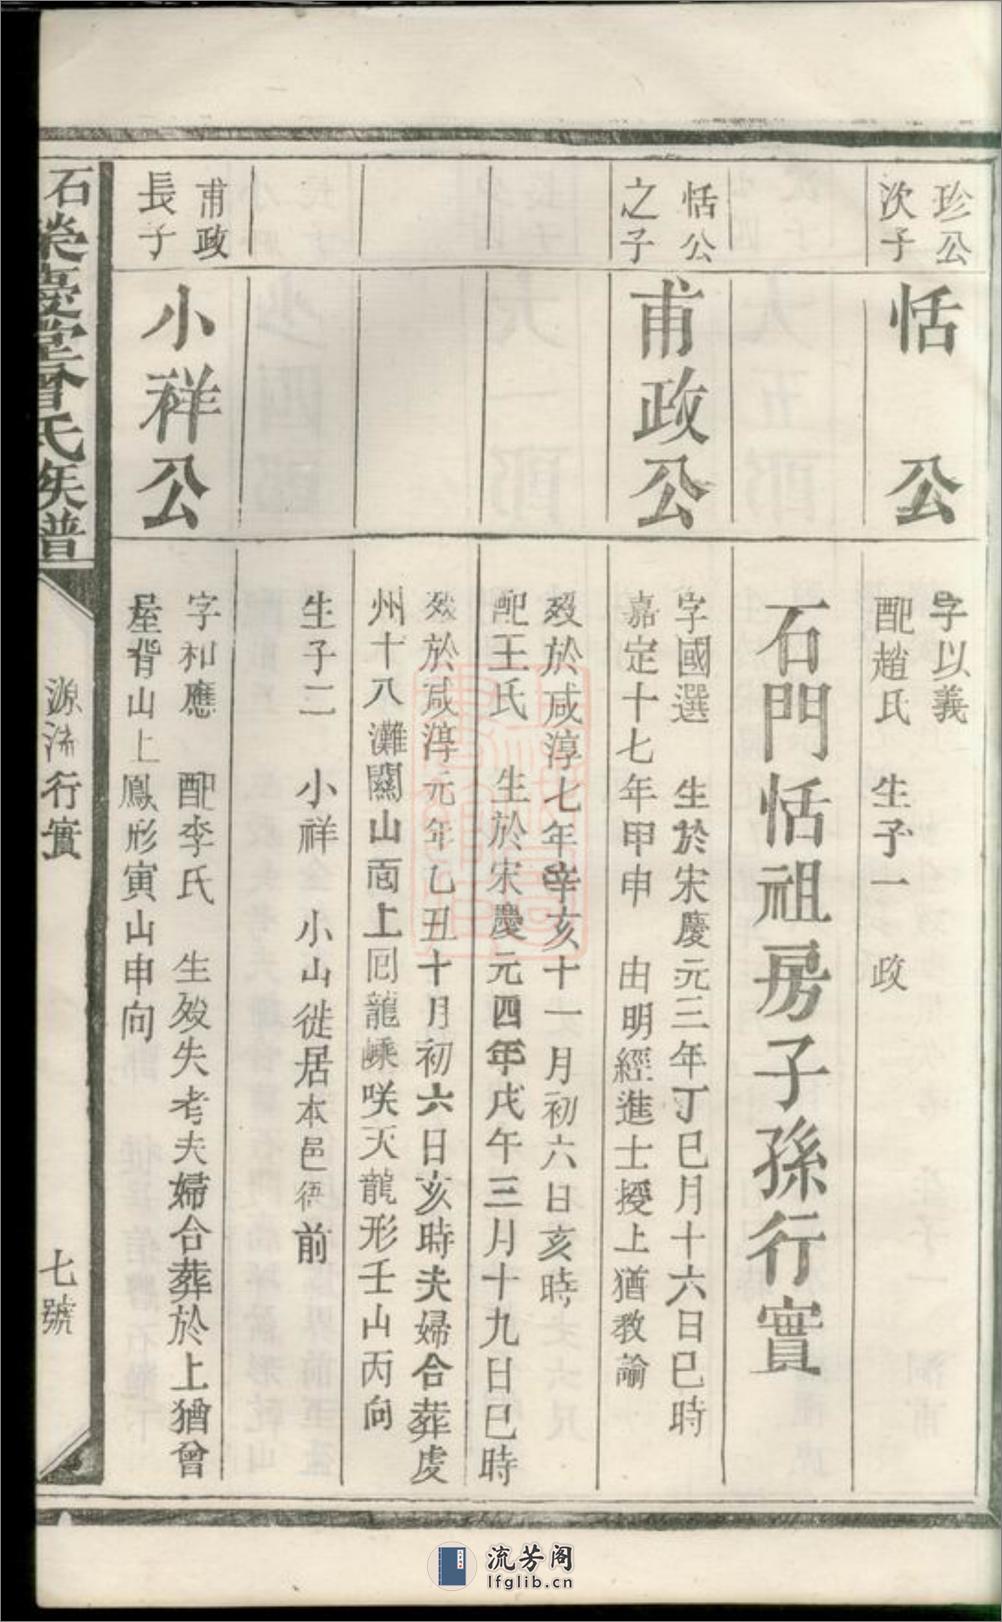 珍公
次子
恬公
字以義
配趙氏　生子一　政
石門恬祖房子孫行實
恬公
之子
甫政公
字國選　生於宋慶元三年丁巳月十六日巳時
嘉定十七年甲申　由明經進士授上猶教諭
歿於咸淳七年辛亥十一月初六日亥時
配王氏　生於宋慶元四年戊午三月十九日巳時
歿於咸淳元年乙丑十月初六日亥時夫婦合葬虔
州十八灘關山面上回龍嵊咲天龍形壬山丙向
生子二　小祥　小山徙居本邑　前
甫政
長子
小祥公
字和應　配李氏　生歿失考夫婦合葬於上猶曾
屋背山上鳳形寅山申向
石榮慶堂曾氏族譜
源流行實
七號
流芳阁
lfglib.cn